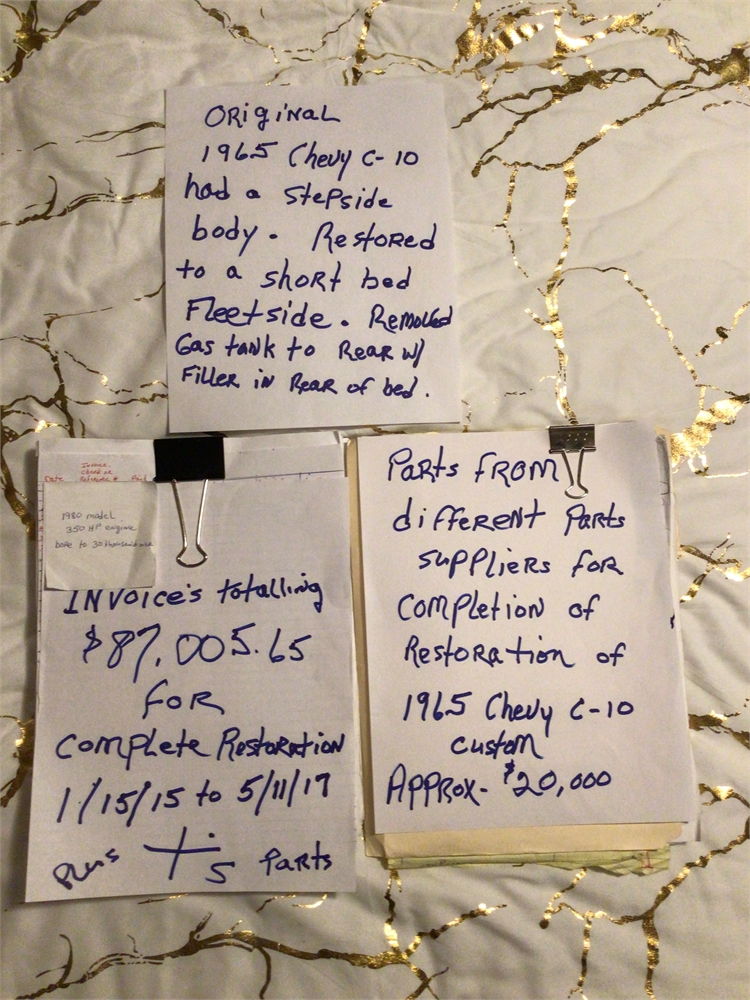 ORiginAL
1965 Chevy C-10
had a Stepside
body. Restored
to a short bed
Fleetside. Removed
Gas tank to Rear w/
Filler in Rear of bed.
Invoice
Check or
Date Reference # Paid
1980 model
350 HP engine
bore to 30 thousand
INVoice's totalling
$87,005.65
FOR
Complete Restoration
1/15/15 to 5/11/17
plus
Parts
Parts From
different Parts
suppliers for
Completion of
Restoration of
1965 Chevy C-10
custom
Approx- $20,000